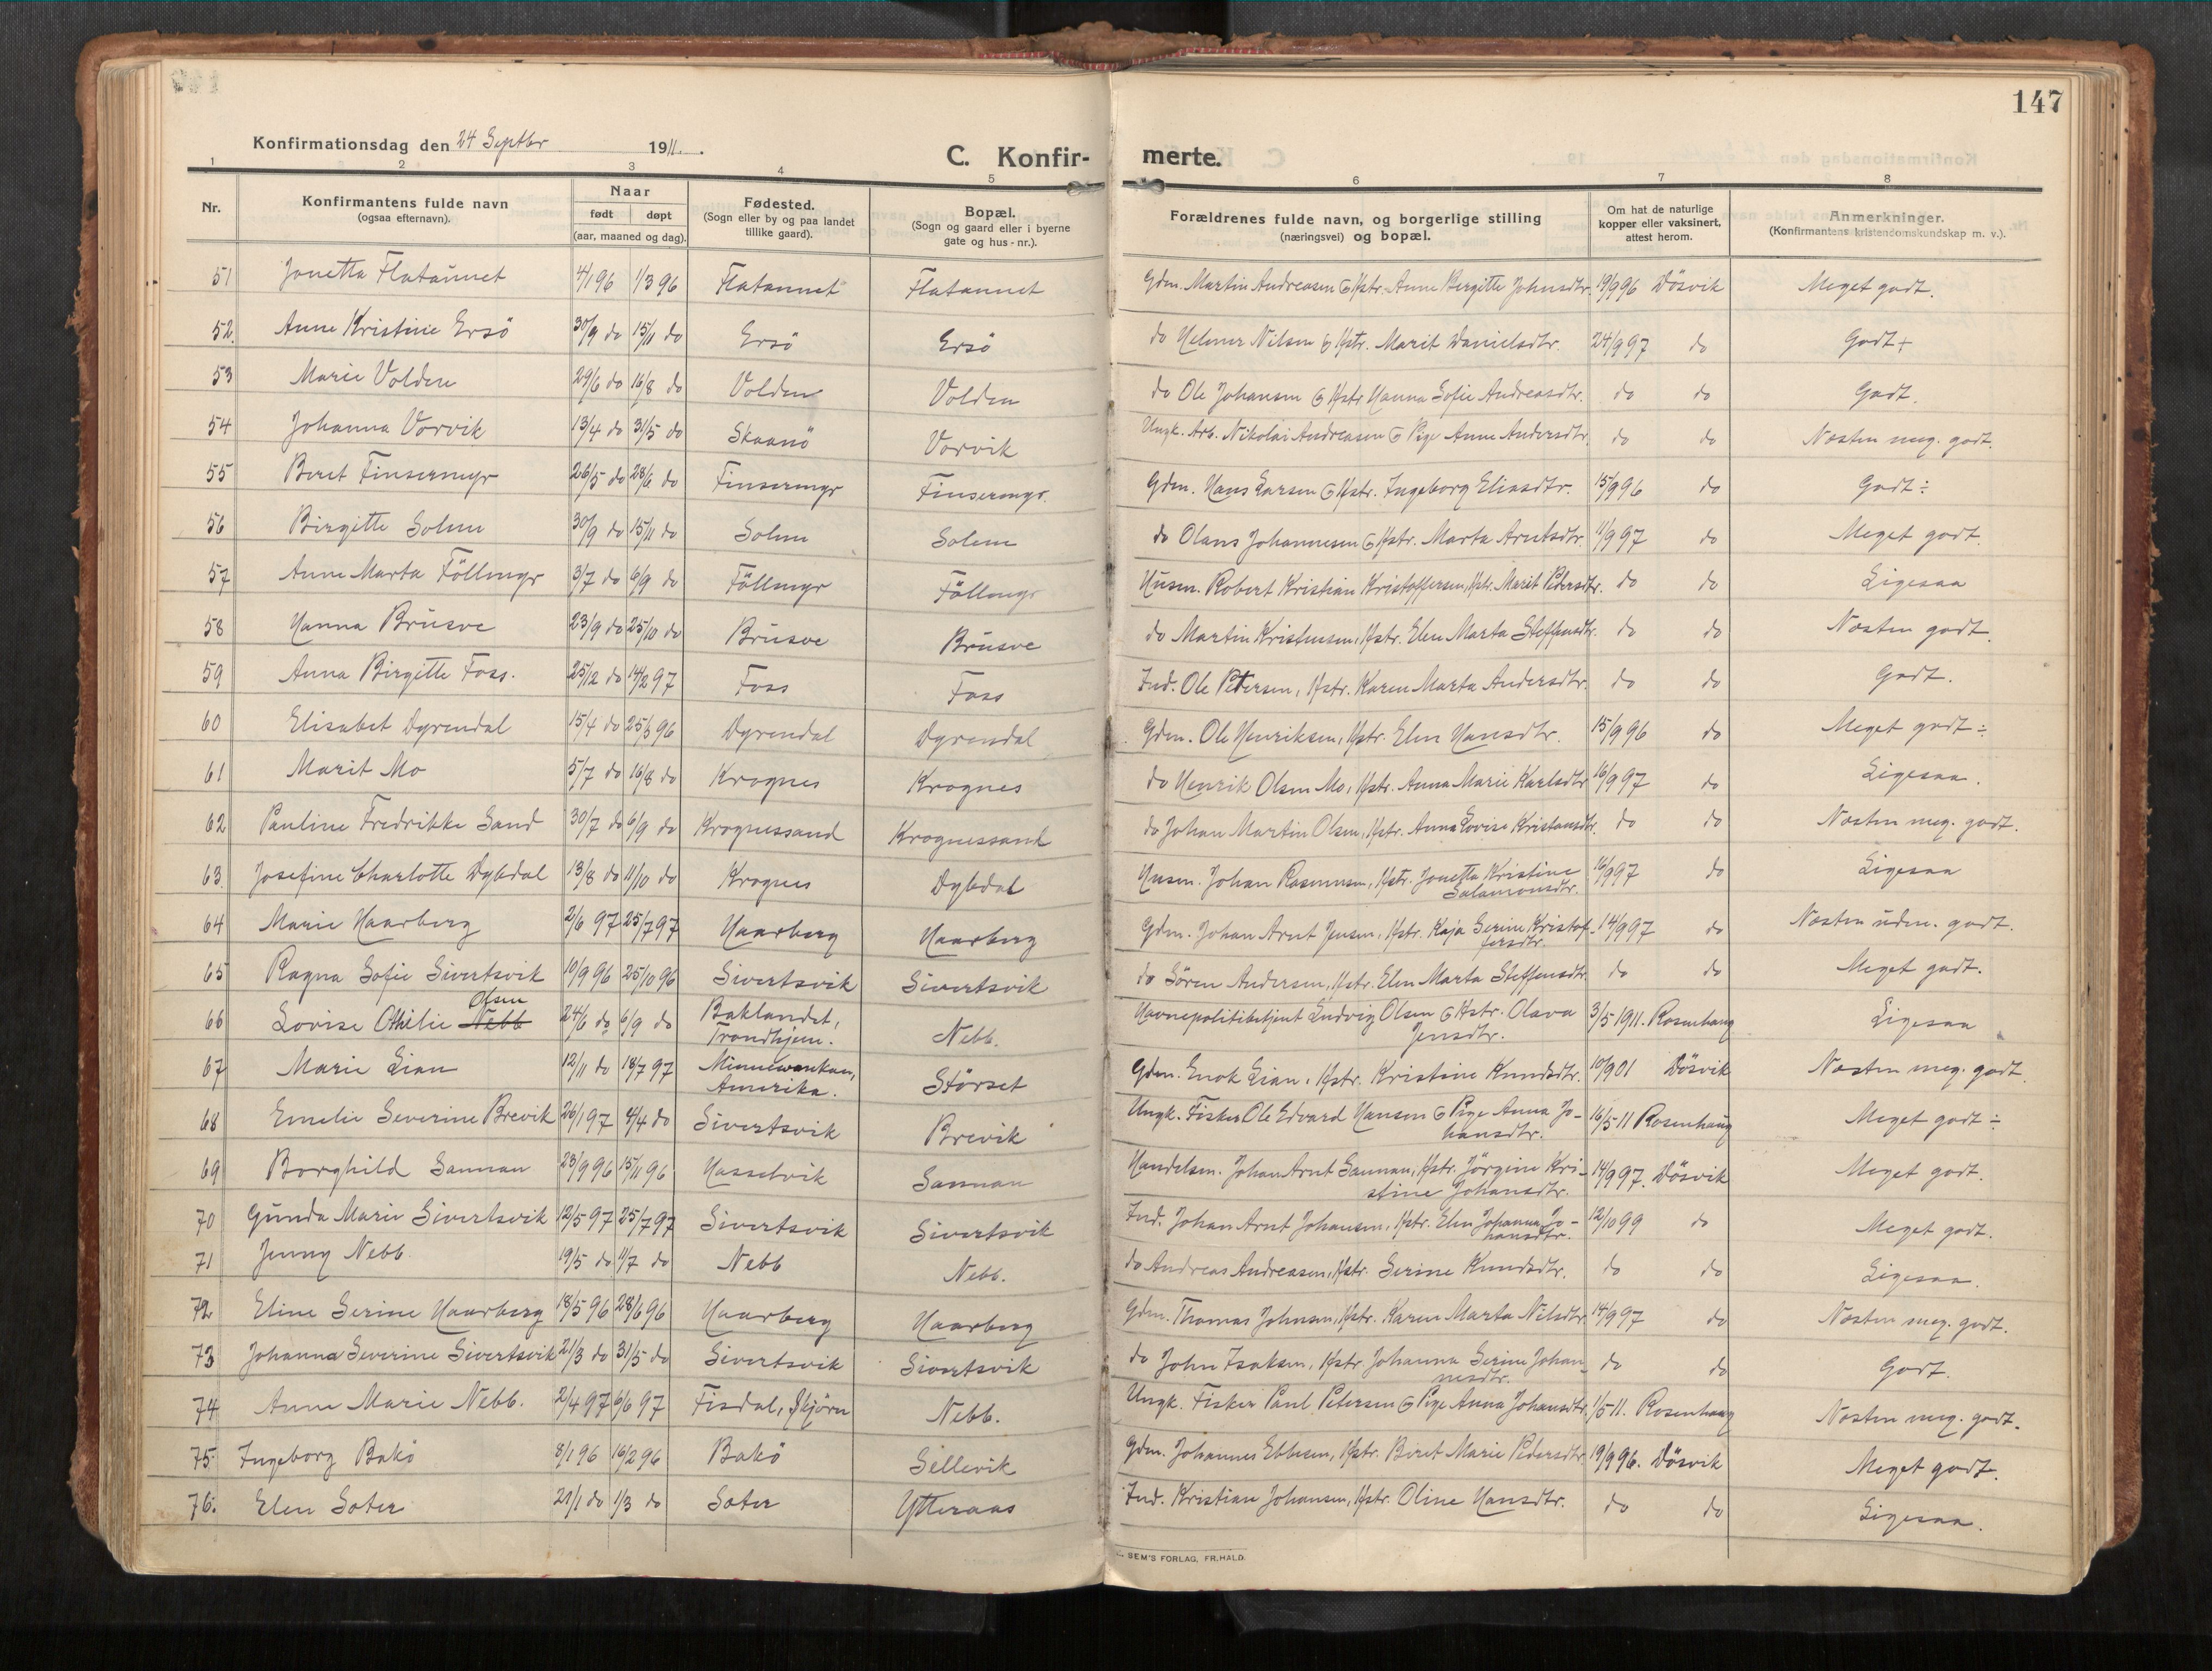 147
Konfirmationsdag den 24 Septbr 1911.
C. Konfir- merte.
1 2 3 4 5 6 7 8
Nr.
Konfirmantens fulde navn
(ogsaa efternavn).
Naar
født døpt
(aar, maaned og dag).
Fødested.
(Sogn eller by og paa landet
tillike gaard).
Bopæl.
(Sogn og gaard eller i byerne
gate og hus-nr.).
Forældrenes fulde navn, og borgerlige stilling
(næringsvei) og bopæl.
Om hat de naturlige
kopper eller vaksinert,
attest herom.
Anmerkninger.
(Konfirmantens kristendomskundskap m. v.).
51 Jonetta Flatännet 4/1 96 1/3 96 Flatannet Flatannet Gdm. Martin Andreasen & Hstr. Anne Birgitte Johnsdtr. 19/9 96 Døsvik Meget godt.
52. Anne Kristine Ersö 30/9 do 15/11 do Ersö Ersö do Helmer Nilsen & Hstr. Marit Danielsdtr. 24/9 97 do Godt +
53 Marie Volden 29/6 do 16/8 do Volden Volden do Ole Johansen & Hstr Hanna Sofie Andreasdtr. do do Godt.
54 Johanna Vorvik 13/4 do 31/5 do Skaanö Vorvik Ungk. Arb. Nikolai Andreasen & Pige Anne Andersdtr. do do Næsten meg. godt.
55 Beret Finsermyr 26/5 do 28/6 do Finsermyr Finsermyr. Gdm. Hans Larsen & Hstr. Ingeborg Eliasdtr. 15/9 96 do Godt ÷
56 Birgitte Solem 30/9 do 15/11 do Solem Solem do Olaus Johannesen & Hstr. Marta Arntsdtr. 11/9 97 do Meget godt.
57 Anne Marta Föllmyr 3/7 do 6/9 do Föllmyr Föllmyr Husm. Robert Kristian Kristoffersen, Hstr. Marit Pedersdtr. do do Ligesaa
58 Hanna Brüsve 23/9 do 25/10 do Brüsve Brüsve do Martin Kristensen, Hstr. Elen Marta Steffensdtr. do do Næsten godt.
59 Anna Birgitte Foss. 25/12 do 14/2 97 Foss Foss Ind. Ole Petersen, Hstr. Karen Marta Andersdtr. do do Godt.
60 Elisabet Dyrendal 15/4 do 25/5 96 Dyrendal Dyrendal Gdm. Ole Henriksen, Hstr. Elen Hansdtr. 15/9 96 do Meget godt ÷
61 Marit Mo 5/7 do 16/8 do Krognes Krognes do Henrik Olsen Mo, Hstr. Anna Marie Karlsdtr 16/9 97 do Ligesaa.
62 Pauline Fredrikke Sand 30/7 do 6/9 do Krognessand Krognessand do Johan Martin Olsen, Hstr. Anna Lovise Kristansdtr. do do Næsten meg. godt.
63. Josefine Charlotte Dybdal 13/8 do 11/10 do Krognes Dybdal Husm. Johan Rasmussen, Hstr. Jonetta Kristine
Salamonsdtr. 16/9 97 do Ligesaa
64 Marie Haarberg 2/6 97 25/7 97 Haarberg Haarberg Gdm. Johan Arnt Jensen, Hstr. Kaja Serine Kristof-
fersdtr. 14/9 97 do Næsten üdm. godt.
65 Ragna Sofie Sivertsvik 10/9 96 25/10 96 Sivertsvik Sivertsvik do Sören Andersen, Hstr. Elen Marta Steffensdtr. do do Meget godt.
Olsen
66 Lovise Othilie Nebb 24/6 do 6/9 do Baklandet,
Trondhjem. Nebb. Havnepolitibetjent Ludvig Olsen & Hstr. Olava
Jensdtr. 3/5 1911. Rosenhaug Ligesaa
67 Marie Lian 12/11 do 18/7 97 Minnewaukan,
Amerika. Störset Gdm. Enok Lian, Hstr. Kristine Knudsdtr. 10/9 01 Døsvik Næsten meg. godt.
68 Emelie Severine Brevik 26/1 97 4/4 do Sivertsvik Brevik Ungk. Fisker Ole Edvard Hansen & Pige Anna Jo-
hansdtr. 16/5 11 Rosenhaug Meget godt ÷
69 Borghild Sannan 23/9 96 15/11 96 Hasselvik Sannan Handelsm. Johan Arnt Sannan, Hstr. Jörgine Kri-
stine Johansdtr. 14/9 97. Døsvik Meget godt.
70 Günda Marie Sivertsvik 12/5 97 25/7 97 Sivertsvik Sivertsvik Ind. Johan Arnt Johansen, Hstr. Elen Johanna Jo-
hansdtr. 12/10 99 do Meget godt.
71 Jenny Nebb. 19/5 do 11/7 do Nebb Nebb. do Andreas Andreasen, Hstr. Serine Knudsdtr. do do Ligesaa.
72 Eline Serine Haarberg 18/5 96 28/6 96 Haarberg Haarberg Gdm. Thomas Johnsen, Hstr. Karen Marta Nilsdtr 14/9 97 do Næsten meg. godt.
73 Johanna Severine Sivertsvik 21/3 do 31/5 do Sivertsvik Sivertsvik do John Isaksen, Hstr. Johanna Serine Johan-
nesdtr. do do Godt.
74 Anne Marie Nebb. 2/4 97 6/6 97 Fisdal, Skjörn Nebb. Ungk. Fisker Paul Petersen & Pige Anna Johansdtr. 1/5 11. Rosenhaug Næsten meg. godt.
75. Ingeborg Bakö 8/1 96 16/2 96 Bakö Sellevik Gdm. Johannes Ebbesen, Hstr. Beret Marie Pedersdtr. 19/9 96. Døsvik Meget godt.
76. Elen Soter 21/1 do 1/3 do Soter Ytteraas Ind. Kristian Johansen, Hstr. Oline Hansdtr. do do Ligesaa.
SEM'S FORLAG, FR.HALD.